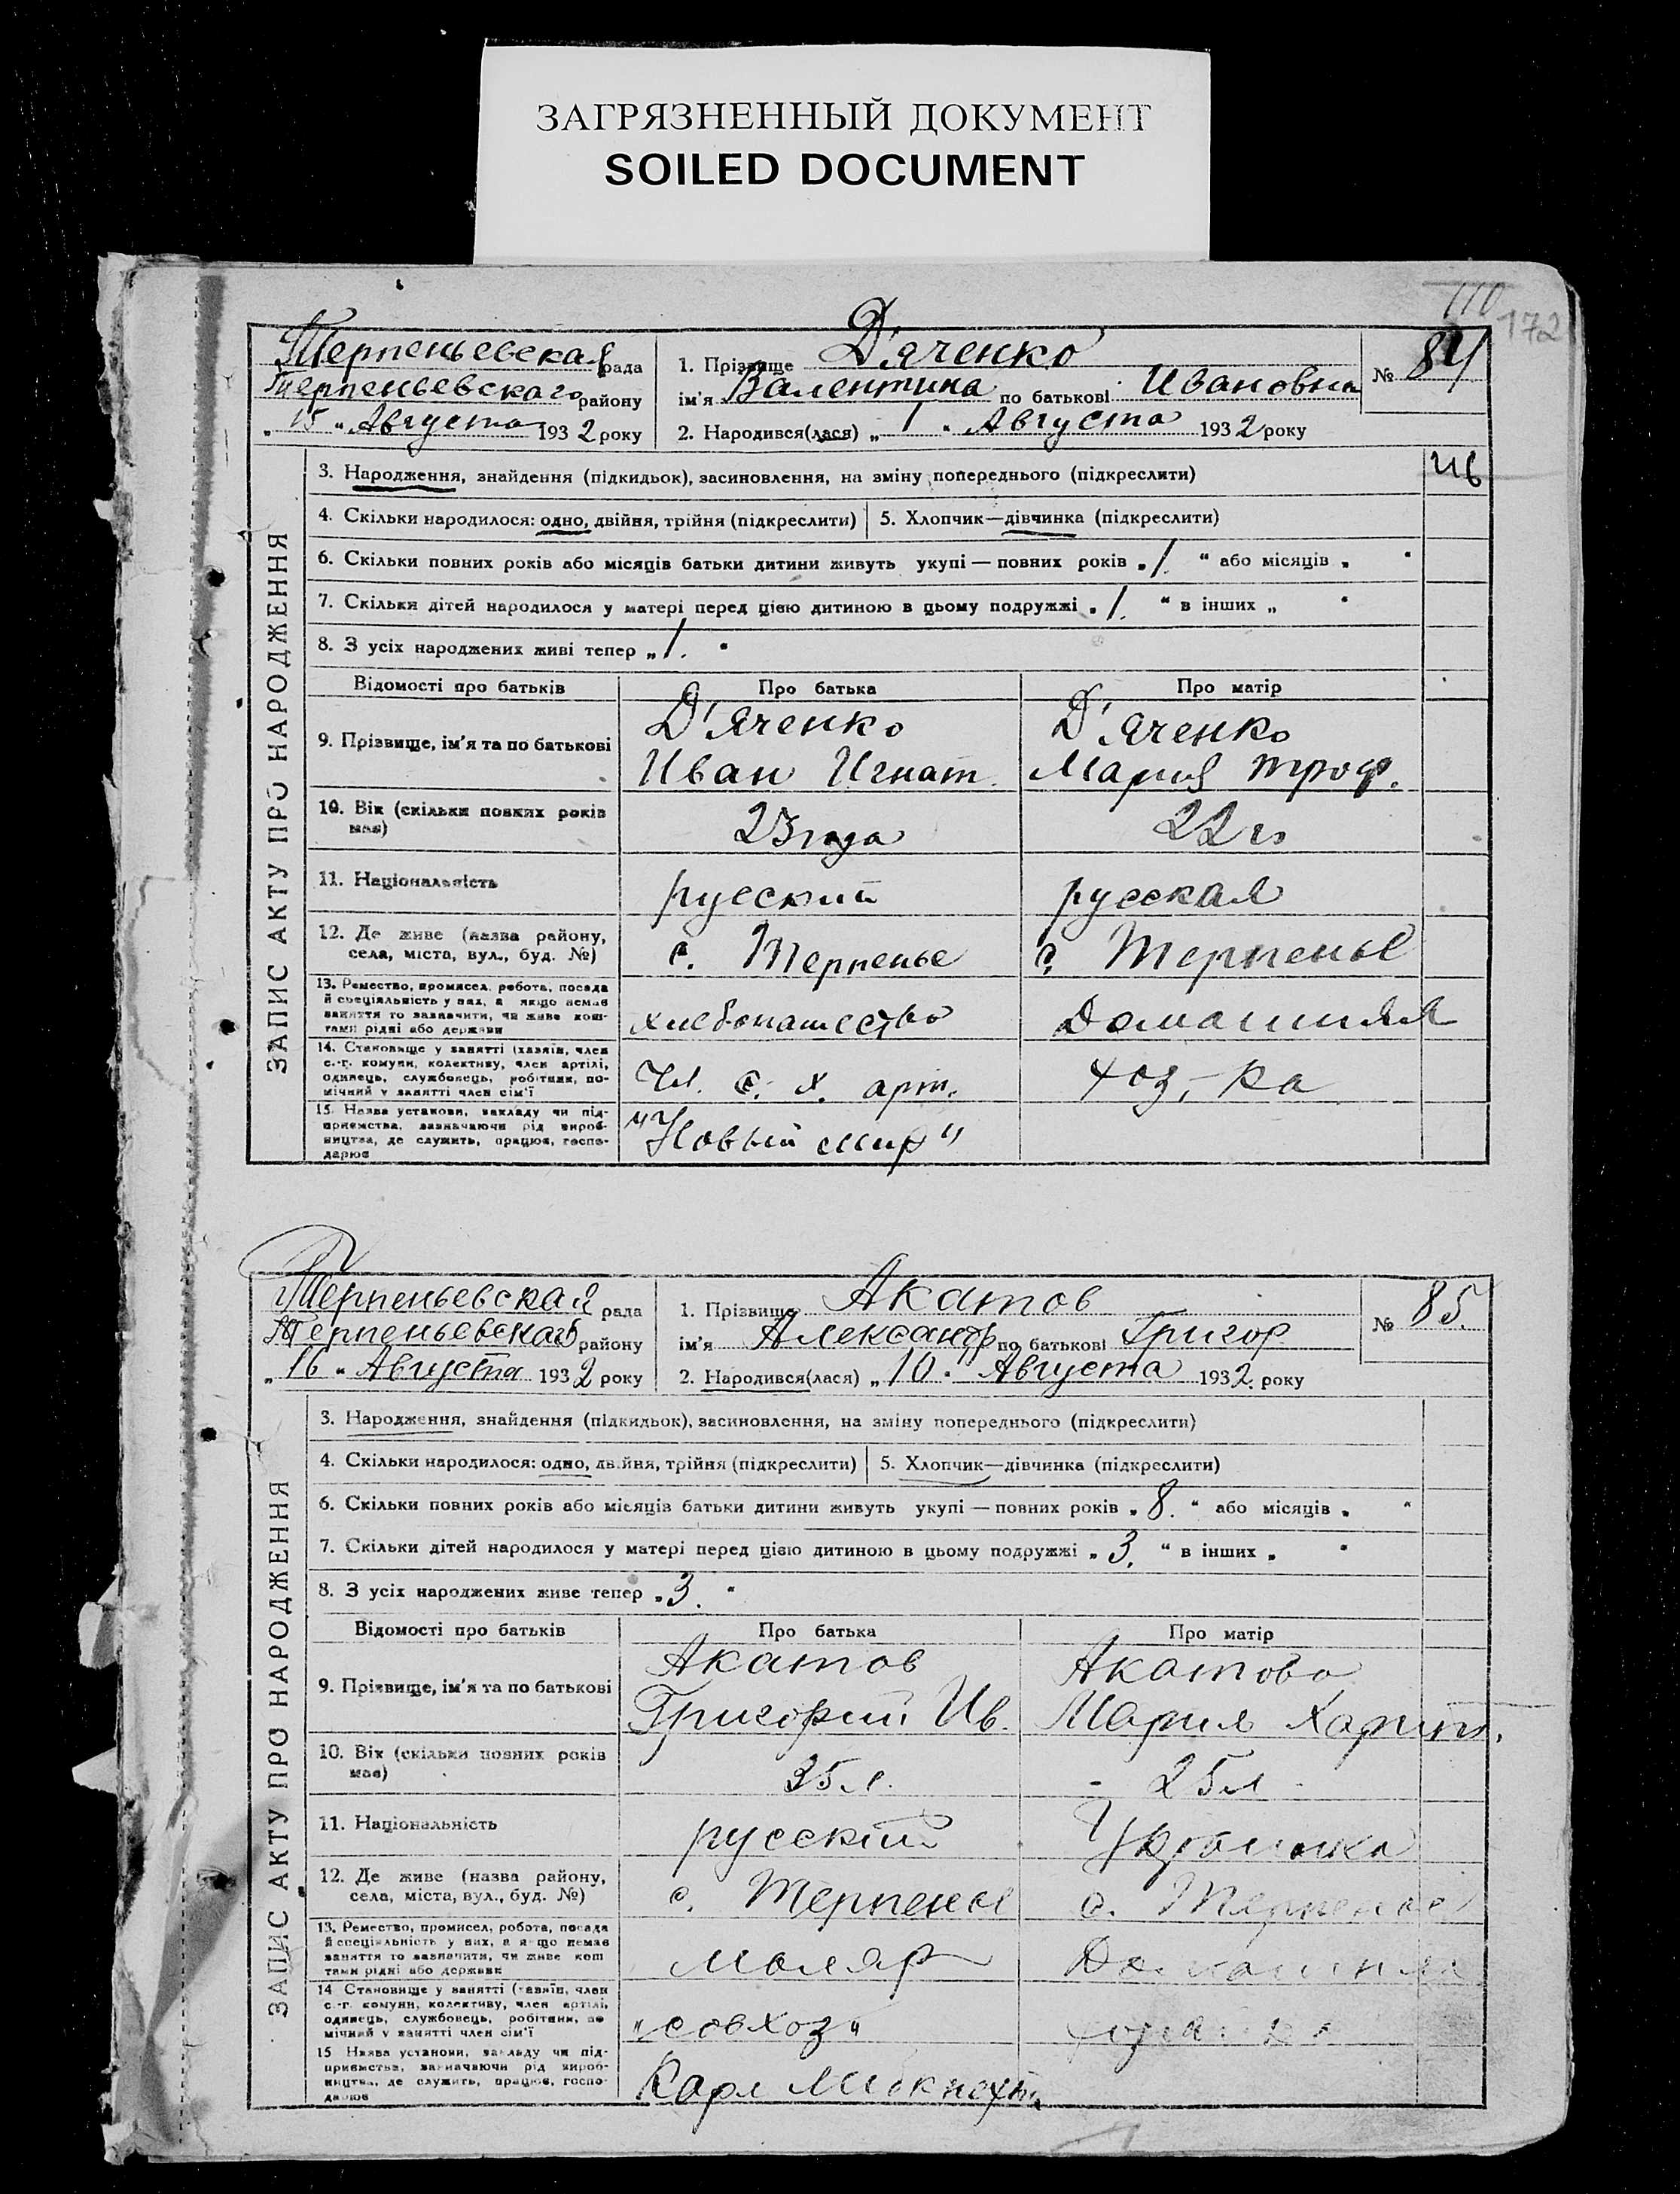 ЗАГРЯЗНЕННЫЙ ДОКУМЕНТ
SOILED DOCUMENT
110
172
Терпеньевская рада
Терпеньевского району
„ 15 “ Августа 1932 року
1. Прізвище Д'яченко
ім'я Валентина по батькові Ивановна
2. Народився(лася) „ 1 “ Августа 1932 року
№ 84
ЗАПИС АКТУ ПРО НАРОДЖЕННЯ
3. Народження, знайдення (підкидьок), засиновлення, на зміну попереднього (підкреслити)
4. Скільки народилося: одно, двійня, трійня (підкреслити)
5. Хлопчик—дівчинка (підкреслити)
6. Скільки повних років або місяців батьки дитини живуть укупі — повних років „ 1. “ або місяців „ “
7. Скільки дітей народилося у матері перед цією дитиною в цьому подружжі „ 1. “ в інших „ “
8. З усіх народжених живі тепер „ 1. “
Відомості про батьків
Про батька
Про матір
9. Прізвище, ім'я та по батькові
Д'яченко
Иван Игнат.
Д'яченко
Мария Троф.
10. Вік (скільки повних років
має)
23 года
22 г.
11. Національність
русский
русская
12. Де живе (назва району,
села, міста, вул., буд. №)
с. Терпенье
с. Терпенье
13. Ремество, промисел, робота, посада
й спеціяльність у них, а якщо немає
заняття то зазначити, чи живе кош-
тами рідні або держави
хлебопашество
Домашняя
14. Становище у занятті (хазяїн, член
с.-г. комуни, колективу, член артілі,
одинець, службовець, робітник, по-
мічний у занятті член сім'ї
Чл. с. х. арт.
хоз,-ка
15. Назва установи, закладу чи під-
приємства, зазначаючи рід вироб-
ництва, де служить, працює, госпо-
дарює
"Новый мир"
Терпеньевская рада
Терпеньевского району
„ 16 “ Августа 1932 року
1. Прізвище Акатов
ім'я Александр по батькові Григор
2. Народився(лася) „ 10 “ Августа 1932. року
№ 85.
ЗАПИС АКТУ ПРО НАРОДЖЕННЯ
3. Народження, знайдення (підкидьок), засиновлення, на зміну попереднього (підкреслити)
4. Скільки народилося: одно, двійня, трійня (підкреслити)
5. Хлопчик—дівчинка (підкреслити)
6. Скільки повних років або місяців батьки дитини живуть укупі — повних років „ 8. “ або місяців „ “
7. Скільки дітей народилося у матері перед цією дитиною в цьому подружжі „ 3. “ в інших „ “
8. З усіх народжених живе тепер „ 3. “
Відомості про батьків
Про батька
Про матір
9. Прізвище, ім'я та по батькові
Акатов
Григорий Ив.
Акатова
Мария Харит.
10. Вік (скільки повних років
має)
35 л.
25 л
11. Національність
русский
Украинка
12. Де живе (назва району,
села, міста, вул., буд. №)
с. Терпенье
с. Терпенье
13. Ремество, промисел, робота, посада
й спеціяльність у них, а якщо немає
заняття то зазначити, чи живе кош
тами рідні або держави
маляр
Домашняя
14 Становище у занятті (хазяїн, член
с.-г. комуни, колективу, член артілі,
одинець, службовець, робітник, по
мічний у занятті член сім'ї
"совхоз"
15 Назва установи, закладу чи під-
приємства, зазначаючи рід вироб-
ництва, де служить, працює, госпо-
дарює
Карл Либкнехт.